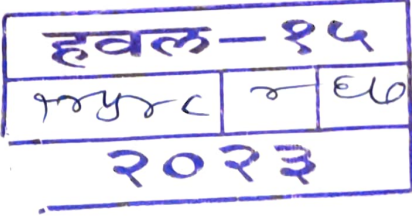 हवल-१५
२ ६७
२०२३